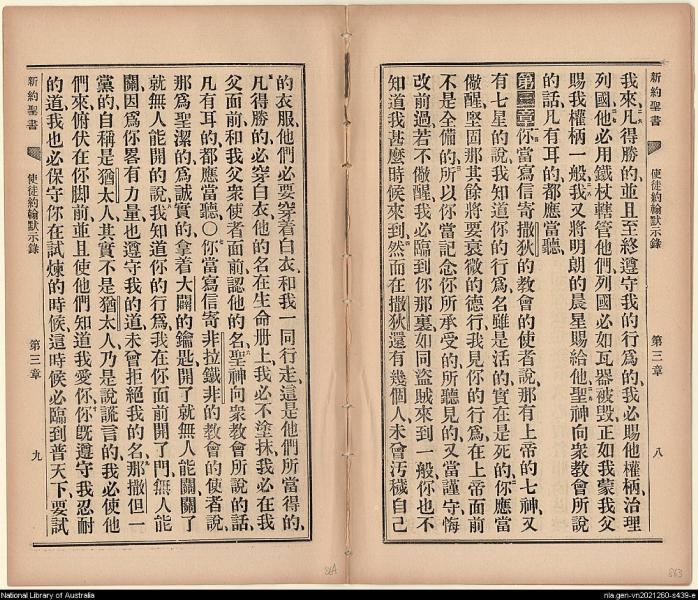 新約聖書
使徒約翰默示錄
第三章
八
我來凡得勝的、並且至終遵守我的行爲的、我必賜他權柄治理
列國他必用鐵杖轄管他們列國必如瓦器被毀、正如我蒙我父
賜我權柄一般、我又將明朗的晨星賜給他聖神向衆教會所說
的話凡有耳的都應當聽、
第三章你當寫信寄撒狄的教會的使者說那有上帝的七神、又
有七星的說我知道你的行爲、名雖是活的實在是死的你應當
儆醒、堅固那其餘將要衰微的德行我見你的行爲、在上帝面前
不是全備的所以你當記念你所承受的所聽見的又當謹守悔
改前過若不儆醒、我必臨到你那裏如同盜賊來到一般你也不
知道我甚麼時候來到、然而在撒狄還有幾個人、未曾汚穢自己
的衣服、他們必要穿着白衣、和我一同行走、這是他們所當得的、
凡得勝的、必穿白衣、他的名在生命册上、我必不塗抹、我必在我
父面前、和我父衆使者面前、認他的名、聖神向衆教會所說的話、
凡有耳的、都應當聽、○你當寫信寄非拉鐵非的教會的使者說、
那爲聖潔的、爲誠實的、拿着大闢的鑰匙開了就無人能關關了
就無人能開的說我知道你的行爲、我在你面前開了門、無人能
關、因爲你畧有力量也遵守我的道、未曾拒絕我的名、那撒但一
黨的、自稱是猶太人、其實不是猶太人、乃是說謊言的、我必使他
們來、俯伏在你脚前、並且使他們知道我愛你、你旣遵守我忍耐
的道、我也必保守你、在試煉的時候、這時候必臨到普天下、要試
新約聖書
使徒約翰默示錄
第三章
九
National Library of Australia
nla.gen-vn2021260-s439-e